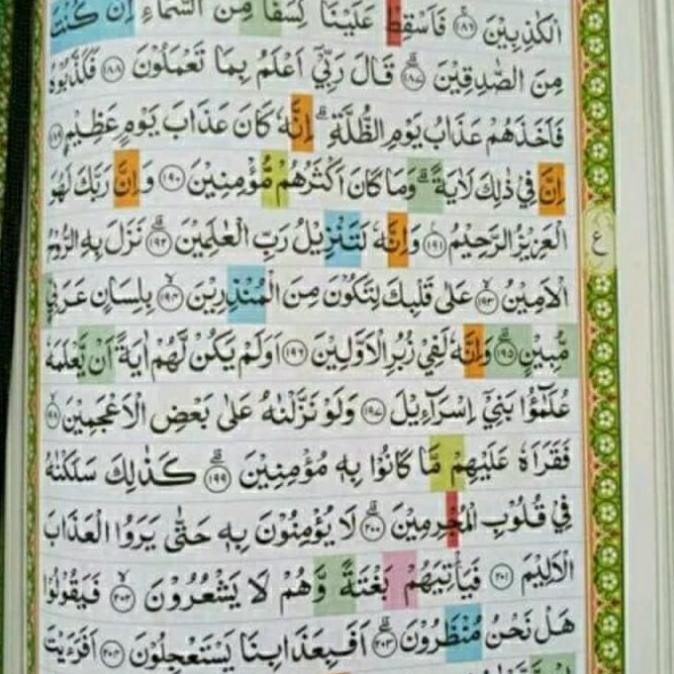 الْكٰذِبِيْنَ ﴿١٨٦﴾ فَاَسْقِطْ عَلَيْنَا كِسَفًا مِّنَ السَّمَآءِ اِنْ كُنْتَ
مِنَ الصّٰدِقِيْنَ ﴿١٨٧﴾ قَالَ رَبِّيْٓ اَعْلَمُ بِمَا تَعْمَلُوْنَ ﴿١٨٨﴾ فَكَذَّبُوْهُ
فَاَخَذَهُمْ عَذَابُ يَوْمِ الظُّلَّةِ ؕ اِنَّهٗ كَانَ عَذَابَ يَوْمٍ عَظِيْمٍ
اِنَّ فِيْ ذٰلِكَ لَاٰيَةً ؕ وَمَا كَانَ اَكْثَرُهُمْ مُّؤْمِنِيْنَ ﴿١٩٠﴾ وَاِنَّ رَبَّكَ لَهُوَ
الْعَزِيْزُ الرَّحِيْمُ ﴿١٩١﴾ وَاِنَّهٗ لَتَنْزِيْلُ رَبِّ الْعٰلَمِيْنَ ﴿١٩٢﴾ نَزَلَ بِهِ الرُّوْحُ
ع
الْاَمِيْنُ ﴿١٩٣﴾ عَلٰى قَلْبِكَ لِتَكُوْنَ مِنَ الْمُنْذِرِيْنَ ﴿١٩٤﴾ بِلِسَانٍ عَرَبِيٍّ
مُّبِيْنٍ ﴿١٩٥﴾ وَاِنَّهٗ لَفِيْ زُبُرِ الْاَوَّلِيْنَ ﴿١٩٦﴾ اَوَلَمْ يَكُنْ لَّهُمْ اٰيَةً اَنْ يَّعْلَمَهٗ
عُلَمٰٓؤُا بَنِيْٓ اِسْرَآءِيْلَ ﴿١٩٧﴾ وَلَوْ نَزَّلْنٰهُ عَلٰى بَعْضِ الْاَعْجَمِيْنَ
فَقَرَاَهٗ عَلَيْهِمْ مَّا كَانُوْا بِهٖ مُؤْمِنِيْنَ ﴿١٩٩﴾ كَذٰلِكَ سَلَكْنٰهُ
فِيْ قُلُوْبِ الْمُجْرِمِيْنَ ﴿٢٠٠﴾ لَا يُؤْمِنُوْنَ بِهٖ حَتّٰى يَرَوُا الْعَذَابَ
الْاَلِيْمَ ﴿٢٠١﴾ فَيَاْتِيَهُمْ بَغْتَةً وَّهُمْ لَا يَشْعُرُوْنَ ﴿٢٠٢﴾ فَيَقُوْلُوْا
هَلْ نَحْنُ مُنْظَرُوْنَ ﴿٢٠٣﴾ اَفَبِعَذَابِنَا يَسْتَعْجِلُوْنَ ﴿٢٠٤﴾ اَفَرَءَيْتَ